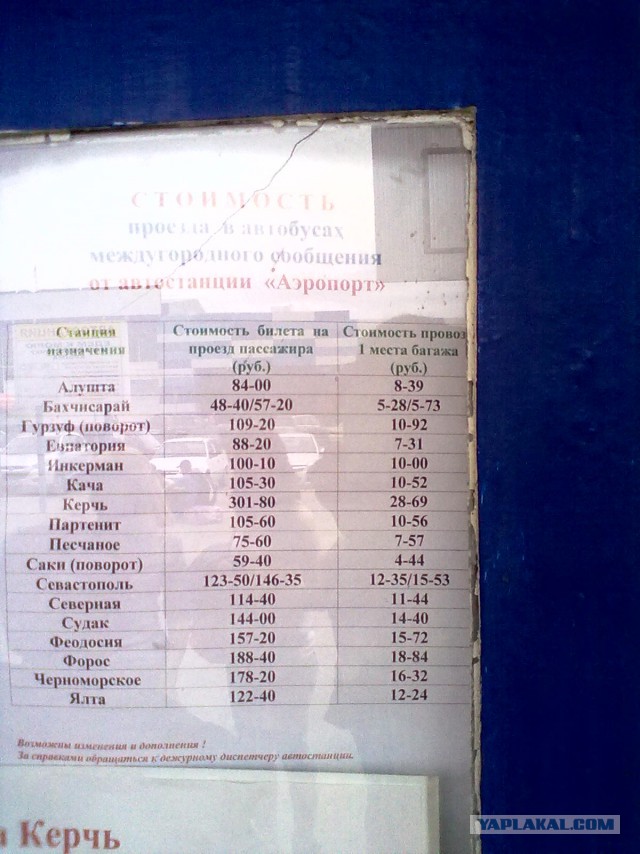 СТОИМОСТЬ
проезда в автобусах
междугородного сообщения
от автостанции «Аэропорт»
Станция назначения Стоимость билета на проезд пассажира (руб.) Стоимость провоз 1 места багажа (руб.)
Алушта 84-00 8-39
Бахчисарай 48-40/57-20 5-28/5-73
Гурзуф (поворот) 109-20 10-92
Евпатория 88-20 7-31
Инкерман 100-10 10-00
Кача 105-30 10-52
Керчь 301-80 28-69
Партенит 105-60 10-56
Песчаное 75-60 7-57
Саки (поворот) 59-40 4-44
Севастополь 123-50/146-35 12-35/15-53
Северная 114-40 11-44
Судак 144-00 14-40
Феодосия 157-20 15-72
Форос 188-40 18-84
Черноморское 178-20 16-32
Ялта 122-40 12-24
Возможны изменения и дополнения !
За справками обращаться к дежурному диспетчеру автостанции.
Керчь
YAPLAKAL.COM